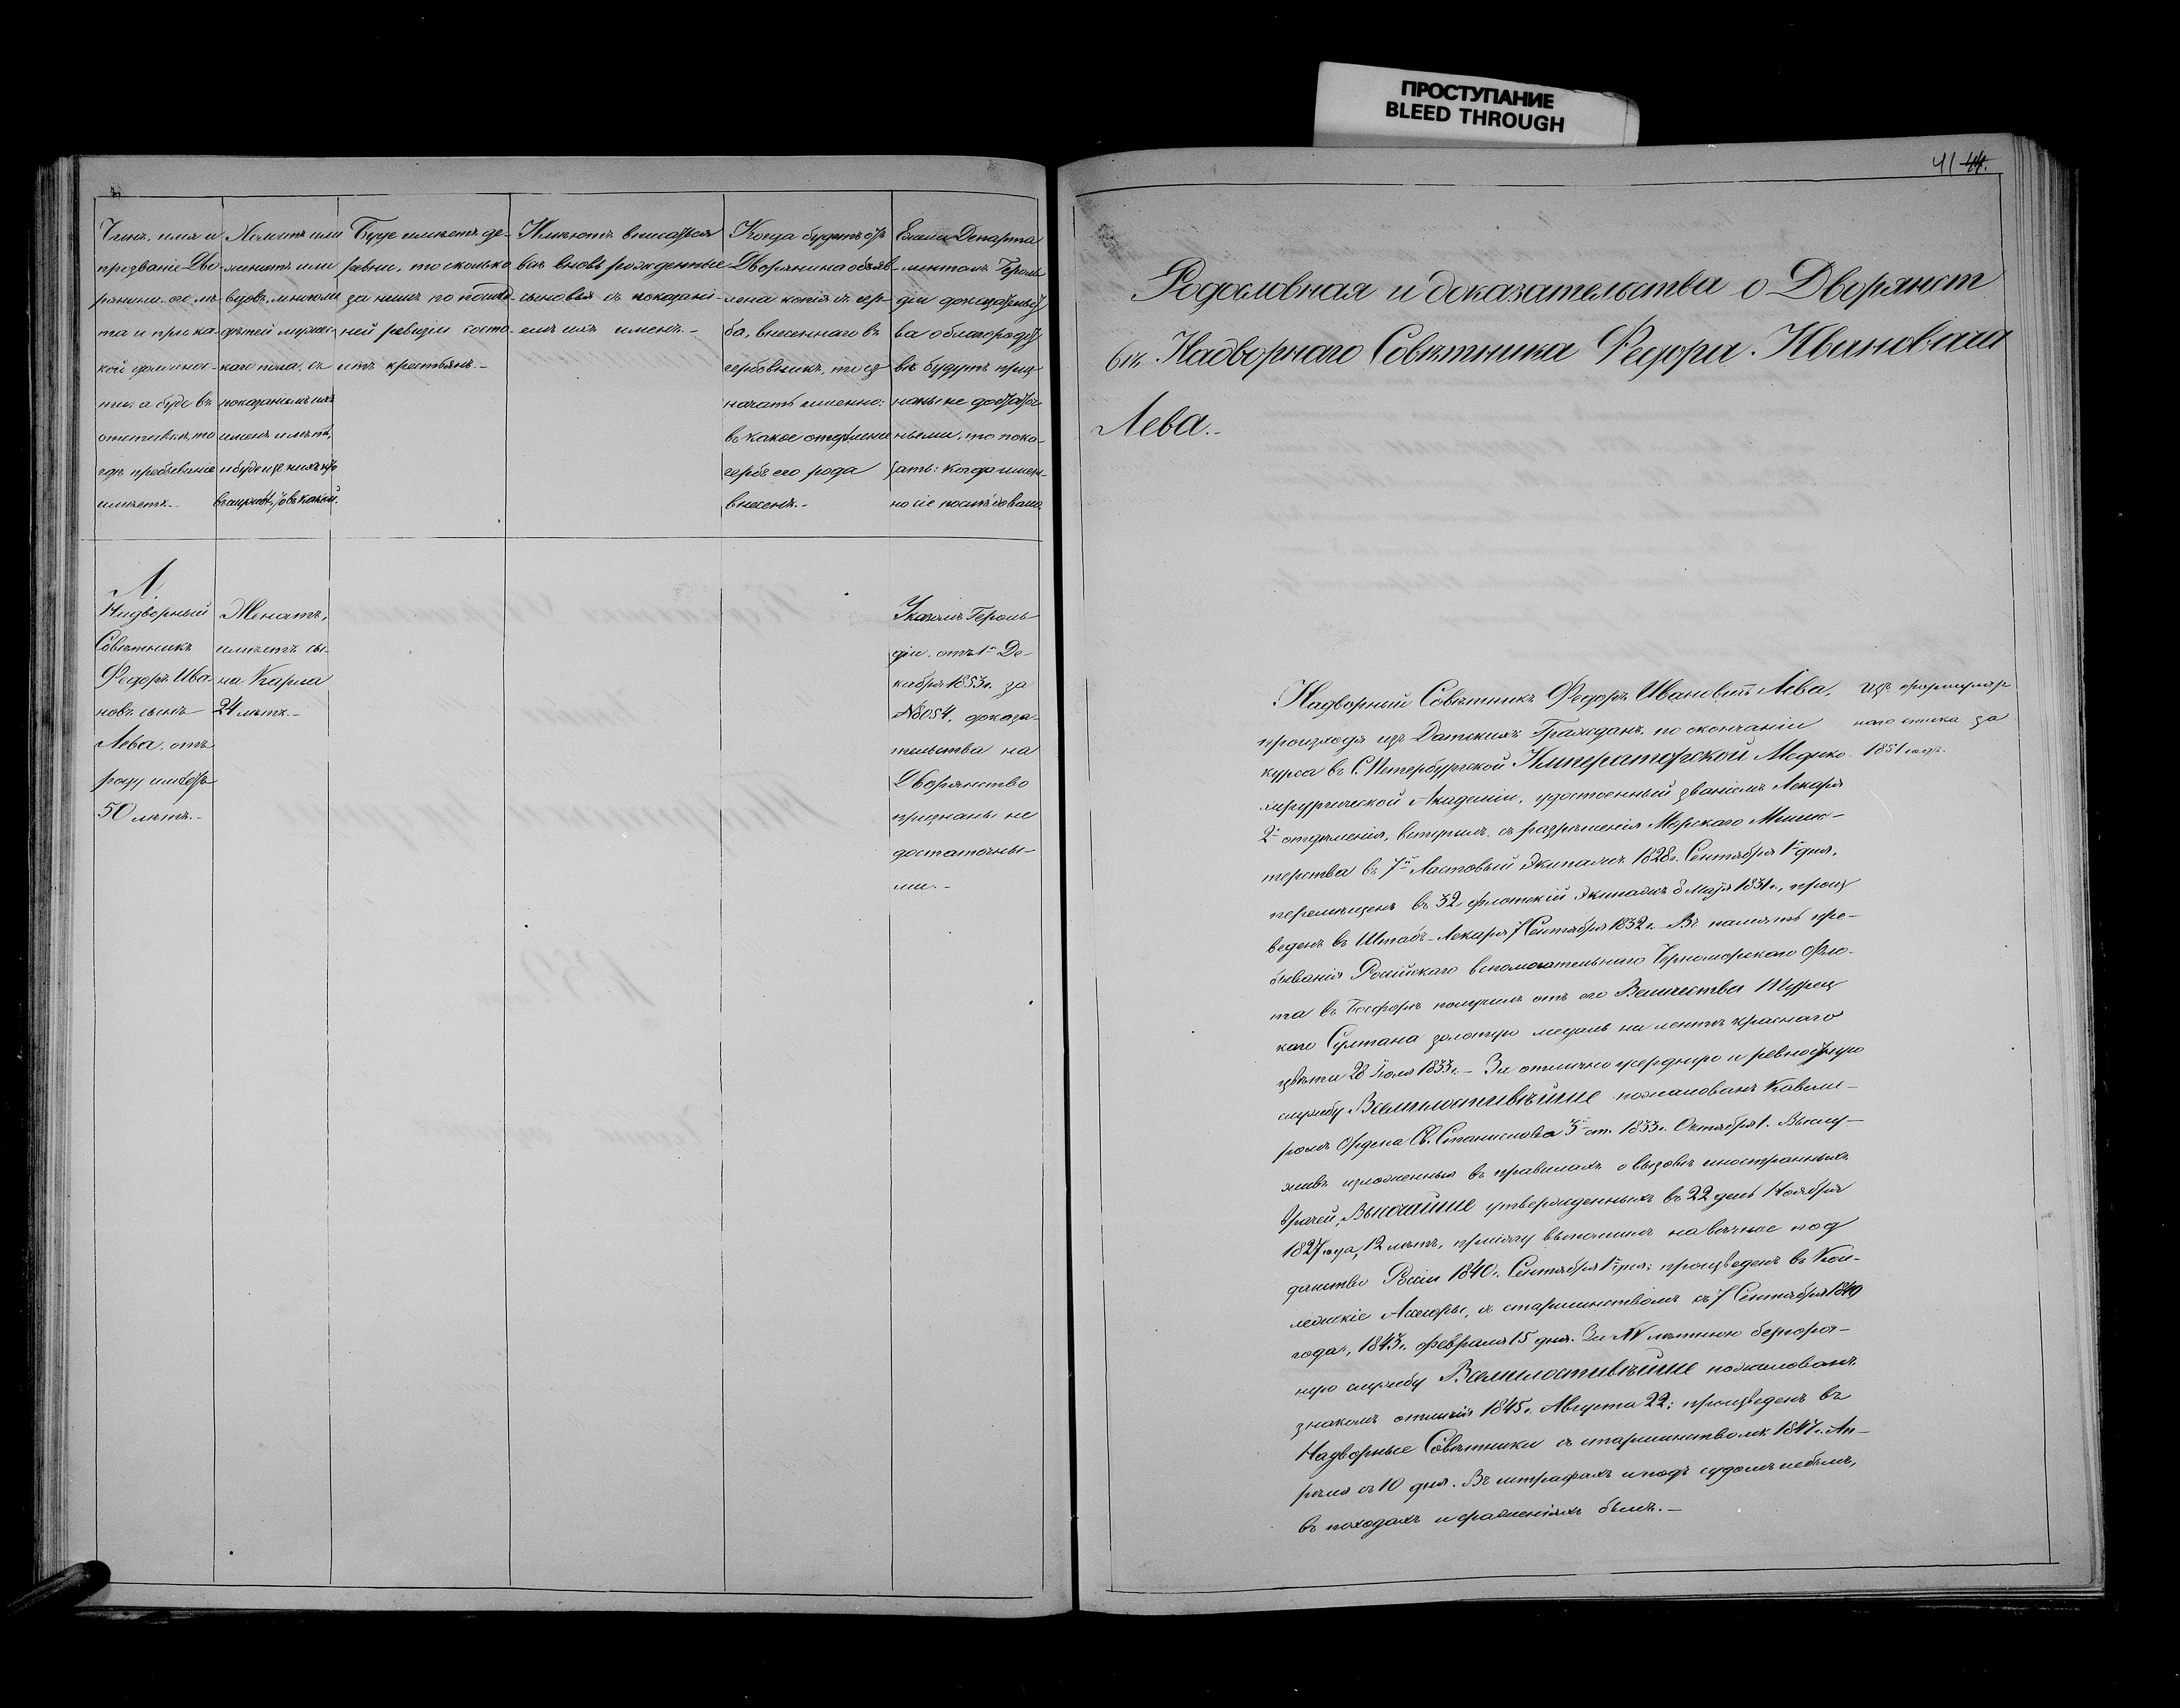 ПРОСТУПАНИЕ
BLEED THROUGH
41 44.
Чинъ, имя и
прозваніе Дво-
рянина. его лѣ-
та и при ка-
кой должнос-
ти, а буде въ
отставкѣ, то
гдѣ пребываніе
имѣетъ.-
Холостъ или
женатъ или
вдовъ, много ли
дѣтей мужес-
каго пола, съ
показаніемъ ихъ
именъ и лѣтъ,
Буде имѣетъ де-
ревни, то сколько
за нимъ по послѣд-
ней ревизіи состо-
итъ крестьянъ.-
Имѣютъ вписаться
всѣ вновь рожденные
сыновья съ показані-
емъ ихъ именъ.-
Когда будетъ отъ
Дворянина объяв-
лена копія съ гер-
ба, внесеннаго въ
гербовникъ, то оз-
начать именно:
въ какое отдѣленіе
гербъ его рода
внесенъ.-
Если Департа
ментомъ Героль
діи доказательст
ва о благородст
вѣ будутъ приз
наны не достаточ
ными, то пока-
зать: когда имен-
но сіе послѣдовало.
Л.
Надворный
Совѣтникъ
Федоръ Ива-
новъ сынъ
Лева. отъ
роду имѣетъ
50 лѣтъ.-
Женатъ,
имѣетъ сы-
на Карла
24 лѣтъ.-
Указомъ Героль
діи. отъ 1го Де-
кабря 1853г. за
№8054, доказа-
тельства на
Дворянство
признаны не
достаточны-
ми.-
Родословная и доказательства о Дворянст
вѣ. Надворнаго Совѣтника Федора Ивановича
Лева.-
Надворный Совѣтникъ Федоръ Ивановичъ Лева,
происходя изъ Датскихъ Гражданъ, по окончаніи
курса въ С.Петербургской Императорской Медико-
хирургической Академіи, удостоенный званіемъ Лекаря
2го отдѣленія, вступилъ съ разрѣшенія Морскаго Минис-
терства въ 7й Ластовый Экипажъ 1828г. Сентября 1го дня,
перемѣщенъ въ 32 флотскій Экипажъ 8 Мая 1831г., произ
веденъ въ Штабъ-Лекаря 7 Сентября 1832г. Въ память пре-
быванія Россійскаго вспомогательнаго Черноморскаго Фло-
та въ Босфорѣ получилъ отъ его Величества Турец
каго Султана золотую медаль на лентѣ краснаго
цвѣта 28 Іюля 1833г.- За отлично усердную и ревностную
службу Всемилостивѣйше пожалованъ Кавале-
ромъ Ордена Св. Станислава 3й ст. 1833г. Октября 1. Выслу-
живъ изложенныя въ правилахъ о вызовѣ иностранныхъ
Врачей, Высочайше утвержденныхъ въ 22 день Ноября
1827 года, 12 лѣтъ, присягу выполнилъ на вѣчное под
данство Россіи 1840г. Сентября 1го дня; произведенъ въ Кол-
лежскіе Асессоры, съ старшинствомъ съ 7 Сентября 1840
года, 1843г. Февраля 15 дня. За XV лѣтнюю безпороч-
ную службу Всемилостивѣйше пожалованъ
знакомъ отличія 1845г. Августа 22; произведенъ въ
Надворные Совѣтники съ старшинствомъ 1847г. Ап-
рѣля съ 10 дня. Въ штрафахъ и подъ судомъ не былъ,
въ походахъ и сраженіяхъ былъ.-
Изъ формуляр
наго списка за
1851 годъ.